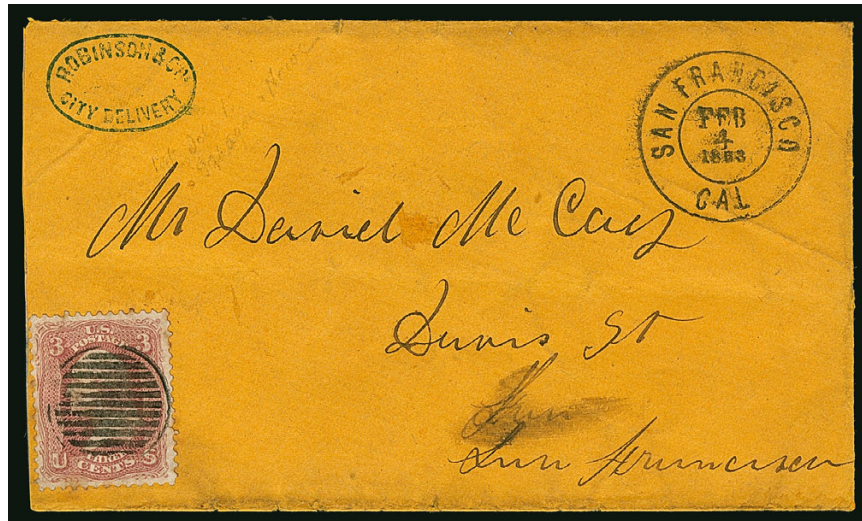 ROBINSON & Co's
CITY DELIVERY
SAN FRANCISCO
FEB
4
1863
CAL
Mr Daniel Mc Cary
Davis St
San
San Francisco
3 U.S. 3
POSTAGE
THREE
U CENTS S